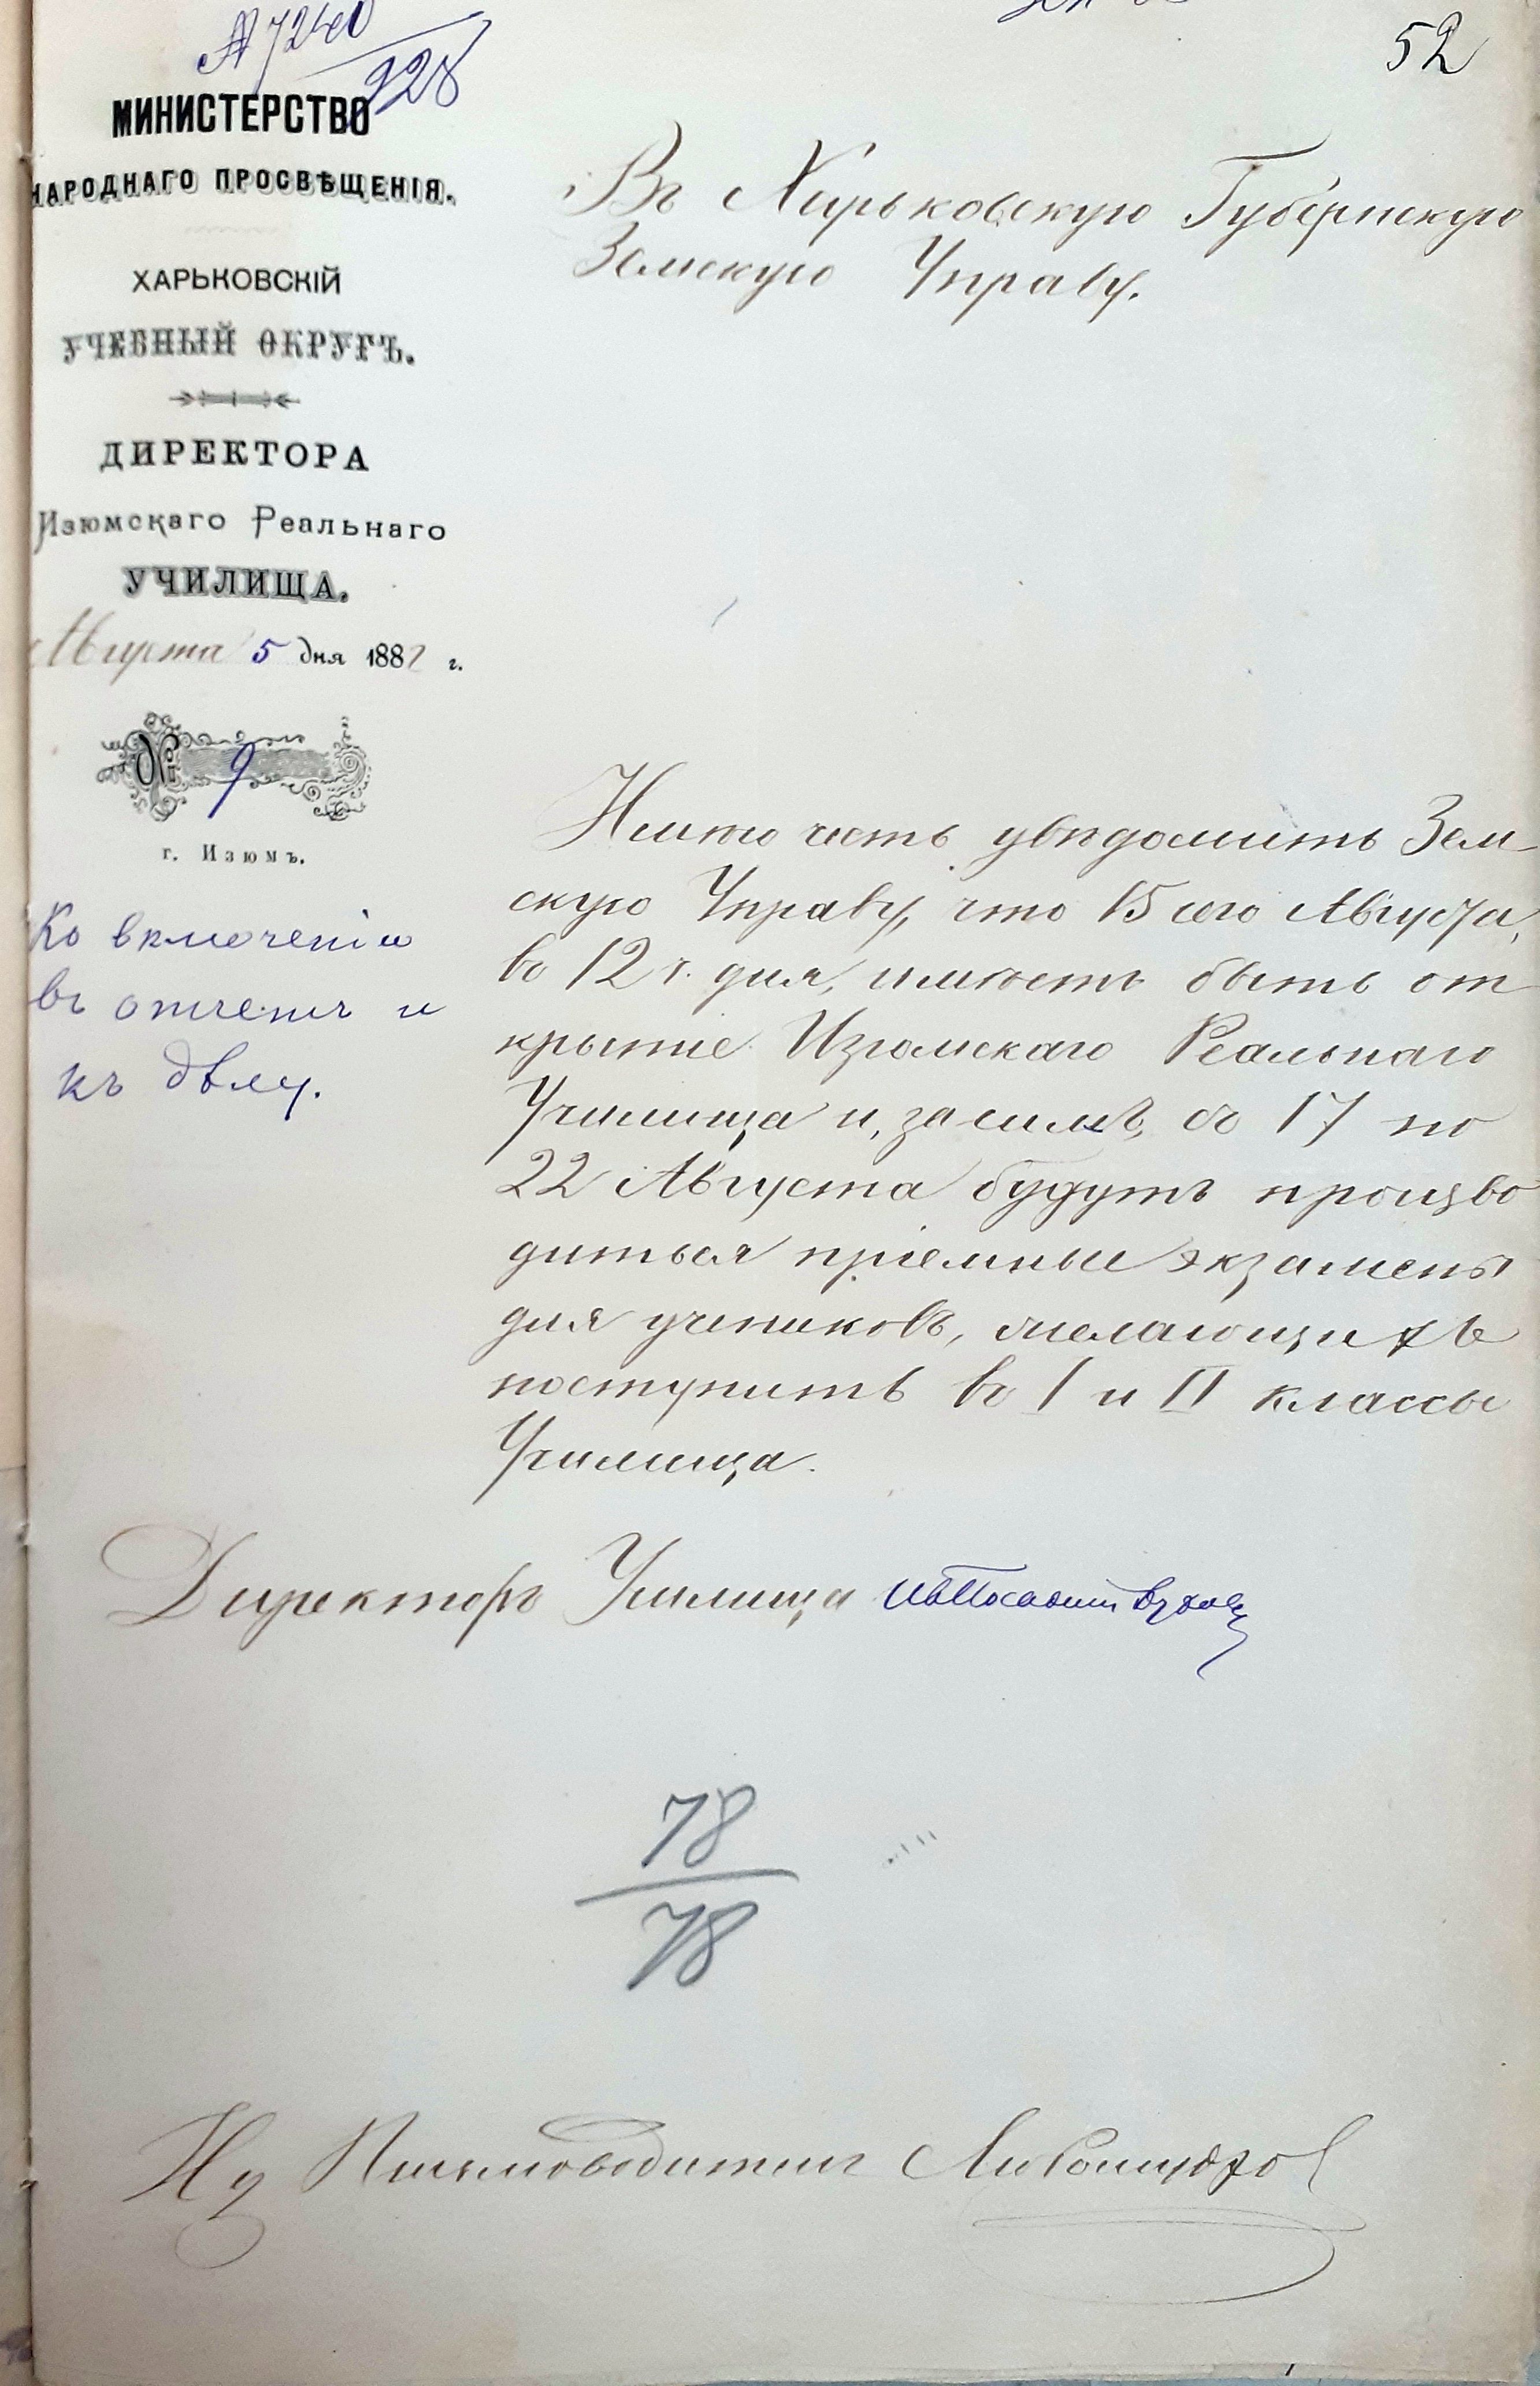 № 7240
928
52
МИНИСТЕРСТВО
НАРОДНАГО ПРОСВѢЩЕНІЯ.
ХАРЬКОВСКІЙ
УЧЕБНЫЙ ОКРУГЪ.
ДИРЕКТОРА
Изюмскаго Реальнаго
УЧИЛИЩА.
Августа 5 дня 1882 г.
№ 9
г. Изюмъ.
Ко включенію
въ отчетъ и
къ дѣлу.
Въ Харьковскую Губернскую
Земскую Управу.
Имѣю честь увѣдомить Зем
скую Управу, что 15 сего Августа,
въ 12 ч. дня, имѣетъ быть от
крытіе Изюмскаго Реальнаго
Училища и, засимъ, съ 17 по
22 Августа будутъ произво
диться пріемные экзамены
для учениковъ, желающихъ
поступить въ I и II классы
Училища.
Директоръ Училища
78
78
И д Письмоводителя